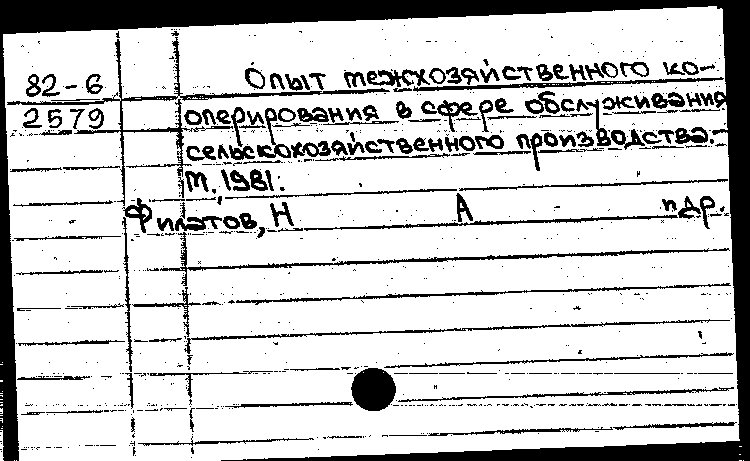 82-6 Опыт межхозяйственного ко-
2579 оперирования в сфере обслуживания
сельскохозяйственного производства.-
М., 1981.
Филатов, Н А и др.